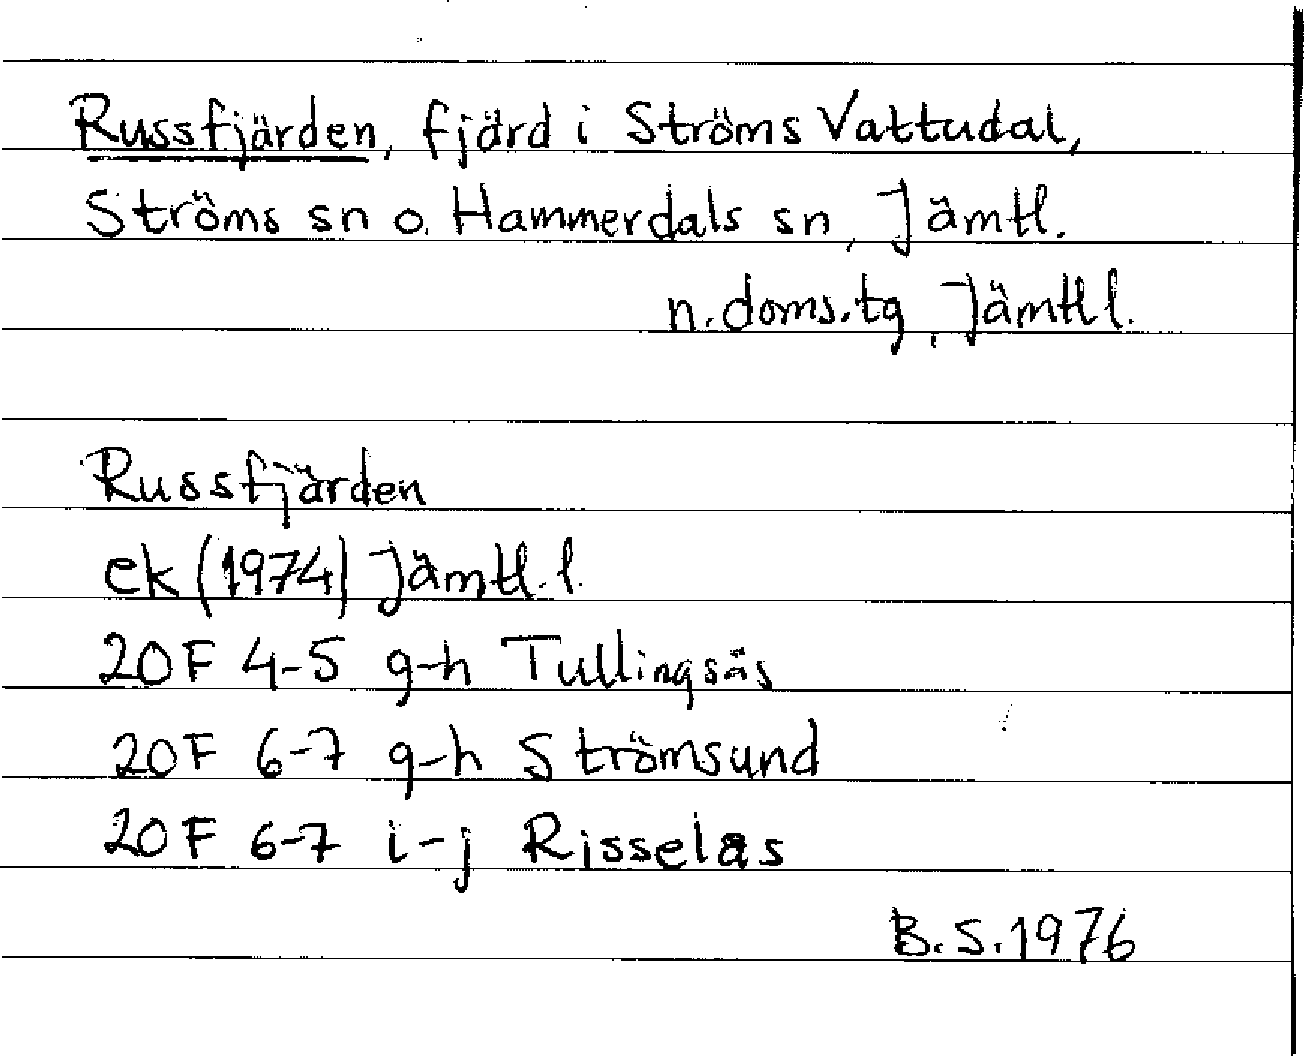 Russfjärden, fjärd i Ströms Vattudal,
Ströms sn o. Hammerdals sn, Jämtl.
n. doms.tg, Jämtl l.
Russfjärden
ek (1974) Jämtl. l.
20F 4-5 g-h Tullingsås
20F 6-7 g-h Strömsund
20F 6-7 i-j Risselas
B.S. 1976